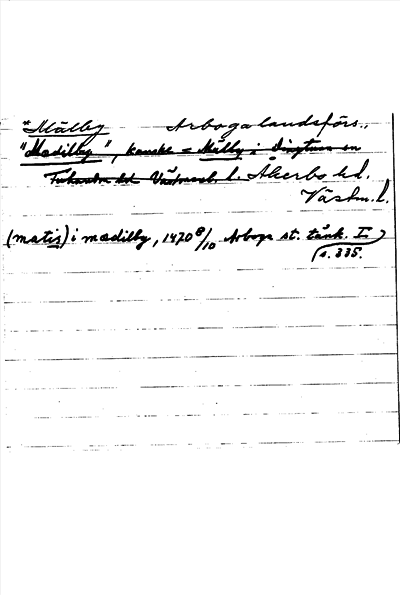 *Mälby Arboga landsförs.,
"Medilby", kanske = Mälby i Dingtuna sn
Tuhundra hd Västmanl. l. Åkerbo hd.
Västm. l.
(matis) i medilby, 1470 8/10 Arboga st. tänk. I.
s. 335.